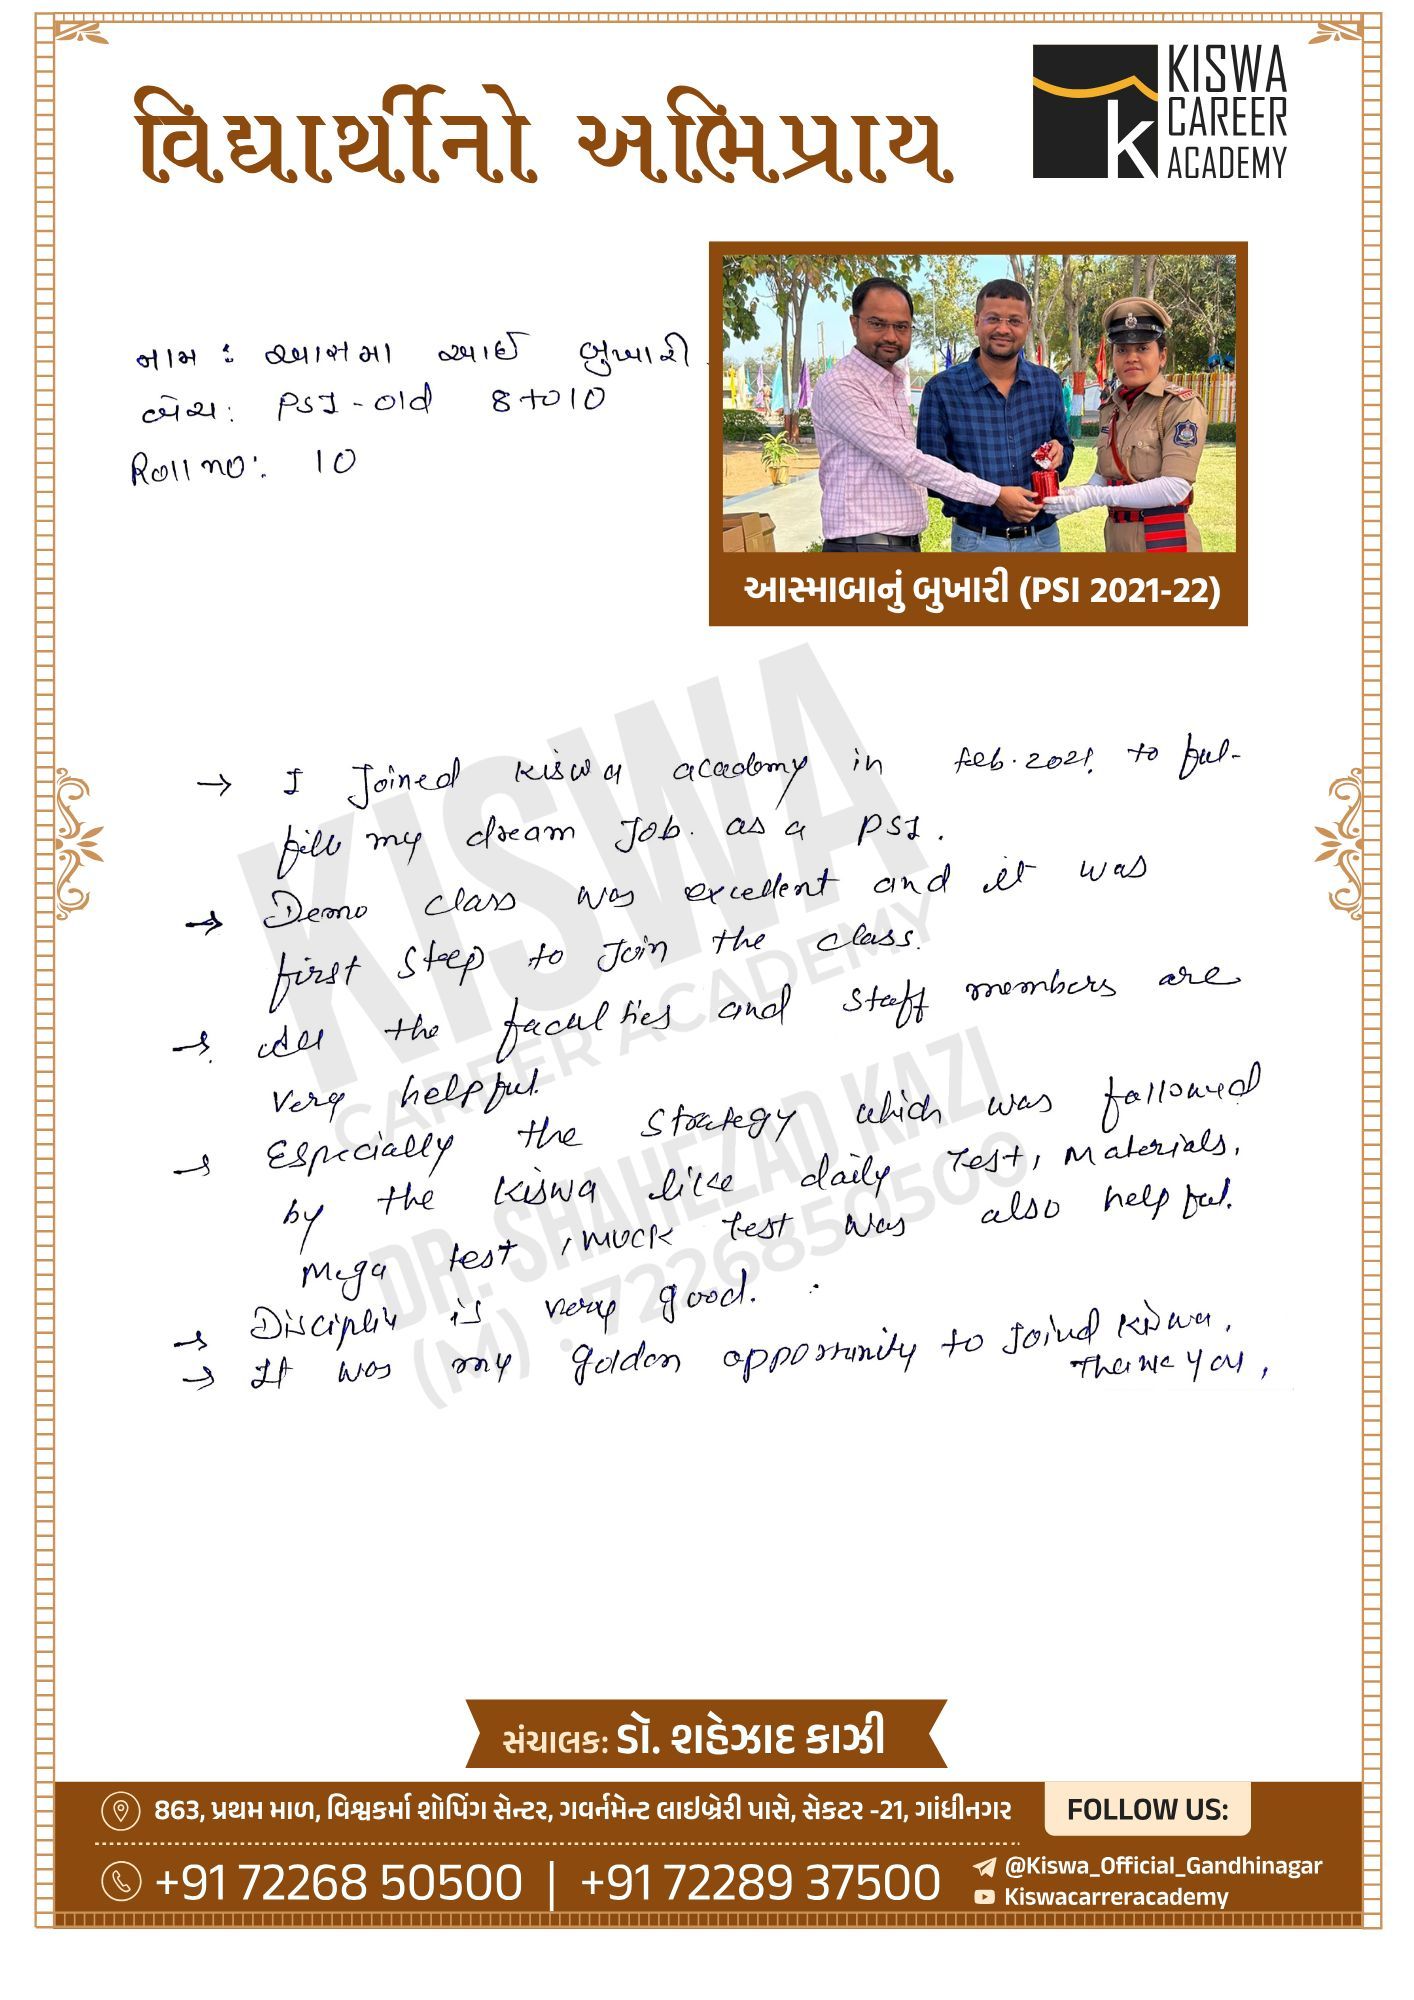 વિદ્યાર્થીનો અભિપ્રાય
KISWA
CAREER
ACADEMY
નામ : આસમા આઈ બુખારી.
બેચ: PSI - old 8 to 10
Roll no: 10
આસ્માબાનું બુખારી (PSI 2021-22)
→ I Joined kiswa academy in feb. 2021. to ful-
fill my dream Job. as a PSI.
→ Demo class was excellent and it was
first step to Join the class.
→ All the faculties and staff members are
very helpful.
→ Especially the strategy which was followed
by the kiswa like daily Test, Materials,
Mega test, muck test was also helpful.
→ Disciplin is very good.
→ It was my golden opportunity to Joind Kiswa.
Thank you,
KISWA
CAREER ACADEMY
DR. SHAHEZAD KAZI
(M) : 7226850500
સંચાલક: ડૉ. શહેઝાદ કાઝી
863, પ્રથમ માળ, વિશ્વકર્મા શોપિંગ સેન્ટર, ગવર્નમેન્ટ લાઇબ્રેરી પાસે, સેક્ટર -21, ગાંધીનગર
FOLLOW US:
+91 72268 50500 | +91 72289 37500
@Kiswa_Official_Gandhinagar
Kiswacarreracademy